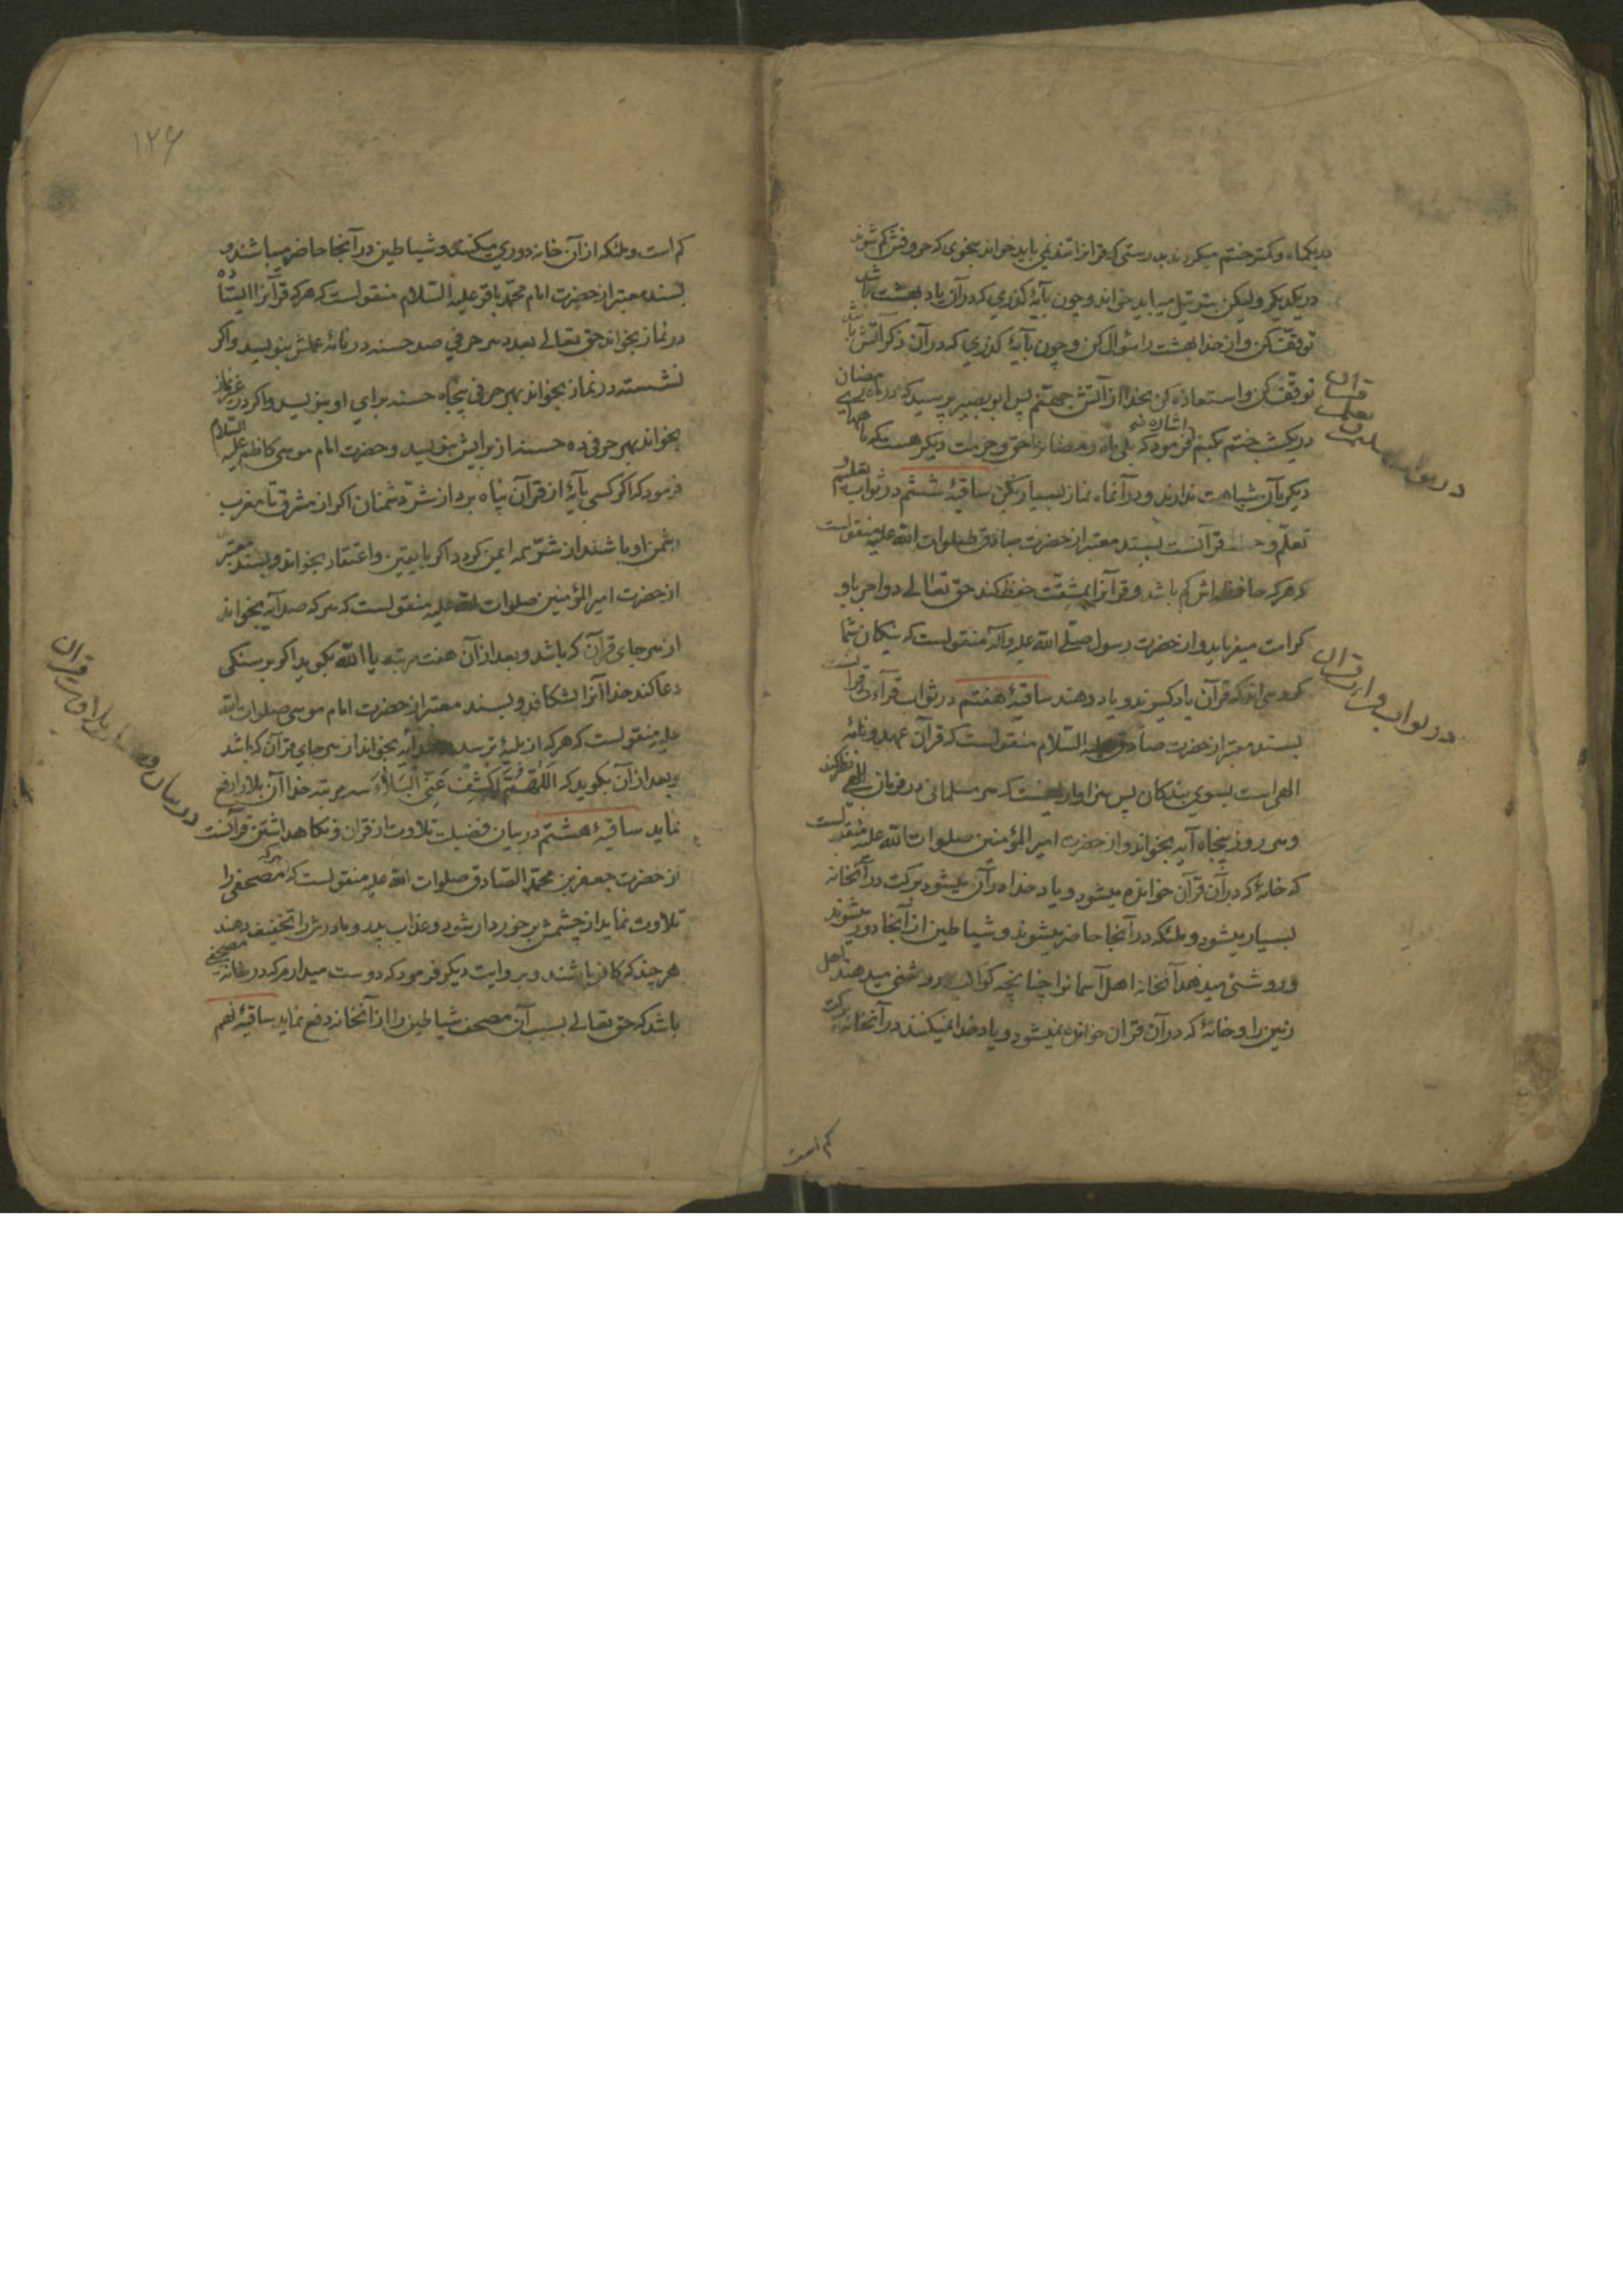 در یکماه و کمتر ختم میکردند بدرستی که قرانرا تند نمی باید خواند بنحوی که حروفش کم شوند
در یکدیگر ولیکن بترتیل میباید خواند و چون بآیهٔ گذری که در آن یاد بهشت باشد
توقف کن و از خدا بهشت را سئوال کن و چون بآیهٔ گذری که در آن ذکر آتش باشد
توقف کن و استعاذه کن بخدا از آتش جهنم پس ابو بصیر پرسید که در ماه رمضان
در یکشب ختم بکنم فرمود که بلی ماه رمضانرا حق و حرمت دیگر هست که ماههای
دیگر بآن شباهت ندارند و در آنماه نماز بسیار بکن ساقیهٔ ششم در ثواب تعلیم و
تعلم و قرآنست بسند معتبر از حضرت صادق صلوات الله علیه منقولست
که هر که حافظه اش کم باشد و قرآنرا بمشقت حفظ کند حق تعالی دو اجر باو
کرامت میفرماید و از حضرت رسول صلی الله علیه و آله منقولست که نیکان شما
گروهی اند که قرآن یاد گیرند و یاد دهند ساقیهٔ هفتم در ثواب قرآءت قرآنست
بسند معتبر از حضرت صادق علیه السلام منقولست که قرآن عهد و نامهٔ
الهی است بسوی بندگان پس سزاوار اینست که هر مسلمانی در فرمان الهی نظر کند
و هر روز پنجاه آیه بخواند و از حضرت امیر المؤمنین صلوات الله علیه منقولست
که خانهٔ که در آن قرآن خوانده میشود و یاد خدا در آن میشود برکت در آنخانه
بسیار میشود و ملئکه در آنجا حاضر میشوند و شیاطین از آنجا دور میشوند
و روشنی میدهد آنخانه اهل آسمانرا چنانچه کواکب روشنی میدهند اهل
زمین را و خانهٔ که در آن قران خوانده نمیشود و یاد خدا نمیکنند در آنخانه برکت
کم است
در ثواب قران
کم است و ملئکه از آن خانه دوری میکنند و شیاطین در آنجا حاضر میباشند و
بسند معتبر از حضرت امام محمد باقر علیه السلام منقولست که هر که قرآنرا ایستاده
در نماز بخواند حق تعالی بعدد هر حرفی صد حسنه در نامهٔ عملش بنویسد و اگر
نشسته در نماز بخواند بهر حرفی پنجاه حسنه برای او بنویسد و اگر در غیر نماز
بخواند بهر حرفی ده حسنه از برایش بنویسد و حضرت امام موسی کاظم علیه السلام
فرمود که اگر کسی بآیهٔ از قرآن پناه برد از شر دشمنان اگر از مشرق تا مغرب
دشمن او باشند از شر همه ایمن گردد اگر با یقین و اعتقاد بخواند و بسند معتبر
از حضرت امیر المؤمنین صلوات الله علیه منقولست که هر که صد آیه بخواند
از هر جای قرآن که باشد و بعد از آن هفت مرتبه یا الله بگوید اگر بر سنگی
دعا کند خدا آنرا بشکافد و بسند معتبر از حضرت امام موسی صلوات الله
علیه منقولست که هر که از بلیهٔ ترسد صد آیه بخواند از هر جای قرآن که باشد
و بعد از آن بگوید که اَللّٰهُمَّ اکْشِفْ عَنِّی الْبَلاءَ سه مرتبه خدا آن بلا را دفع
نماید ساقیهٔ هشتم در بیان فضیلت تلاوت از قران و نگاهداشتن قرآنست
از حضرت جعفر بن محمد الصادق صلوات الله علیه منقولست که هر که مصحفی را
تلاوت نماید از چشمش برخوردار شود و عذاب پدر و مادرش را تخفیف دهند
هر چند که کافر باشند و بروایت دیگر فرمود که دوست میدارم که در خانه مصحفی
باشد که حق تعالی بسبب آن مصحف شیاطین را از آنخانه دفع نماید ساقیهٔ نهم
۱۲۶